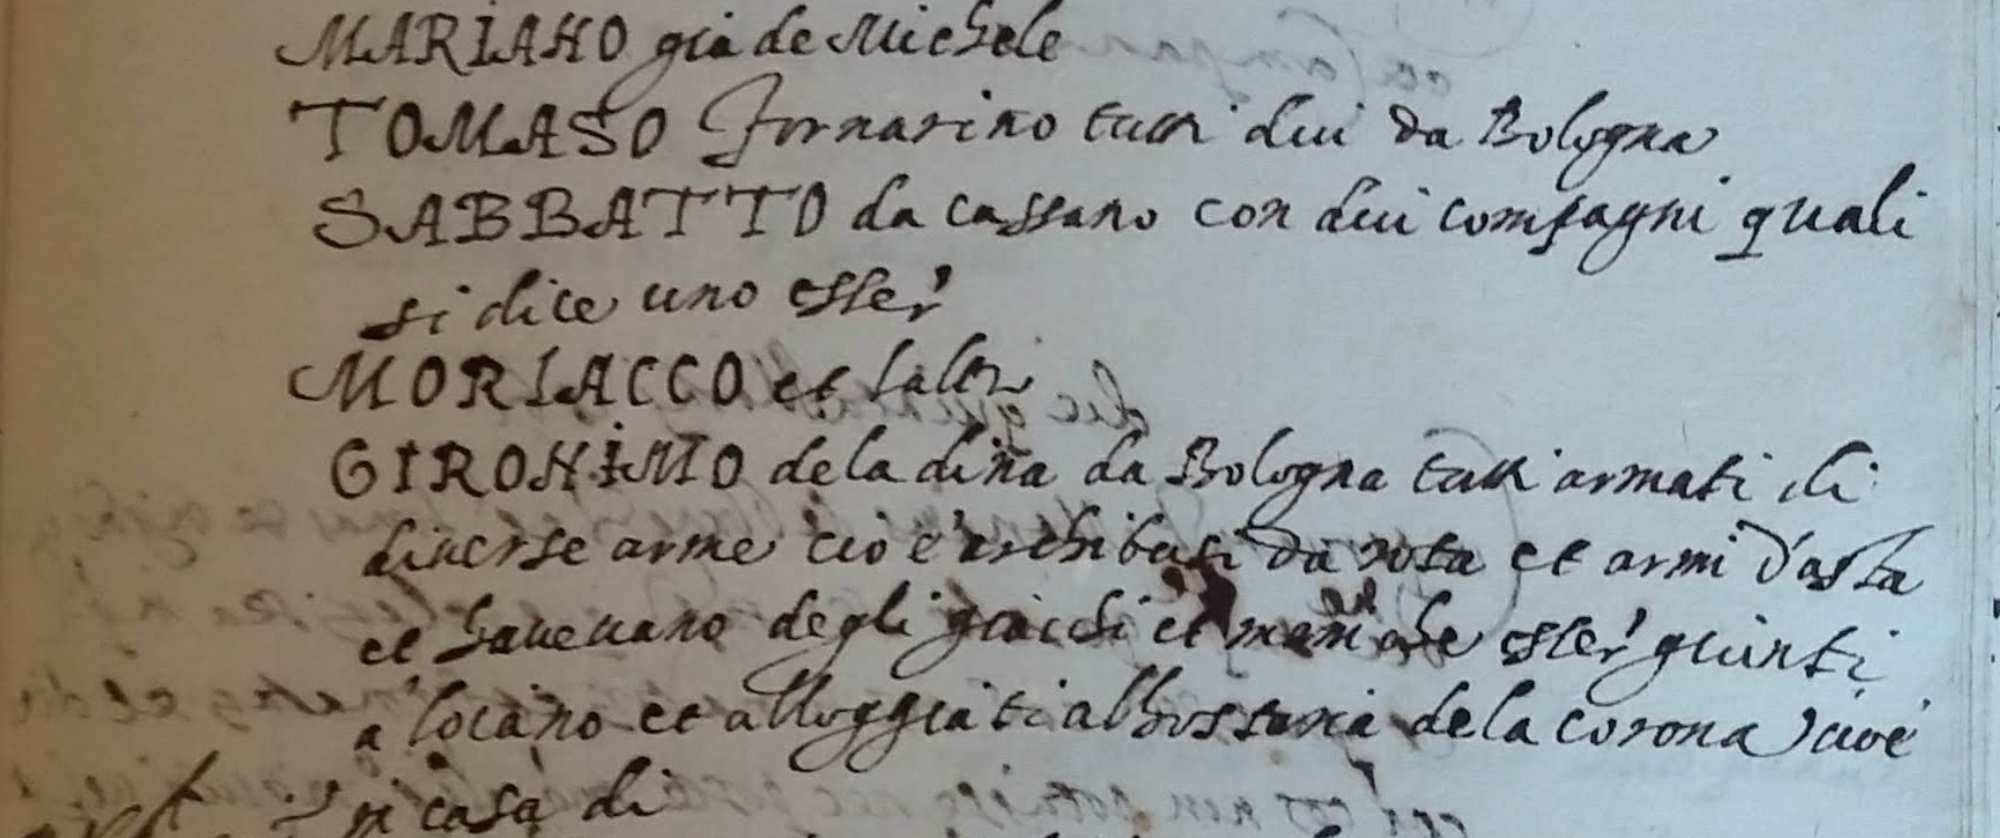 MARIANO già de Michele
TOMASO Fornarino tutti dui da Bologna
SABBATTO da cassano con dui compagni quali
si dice uno esser
MORIACCO et l'altro
GIRONIMO dela dina da Bologna tutti armati di
diuerse arme cio è archibusi da rota et armi d'asta
et haueuano degli giacchi et maniche esser giunti
a locarno et alloggiati all'hostaria de la corona cioè
in casa di